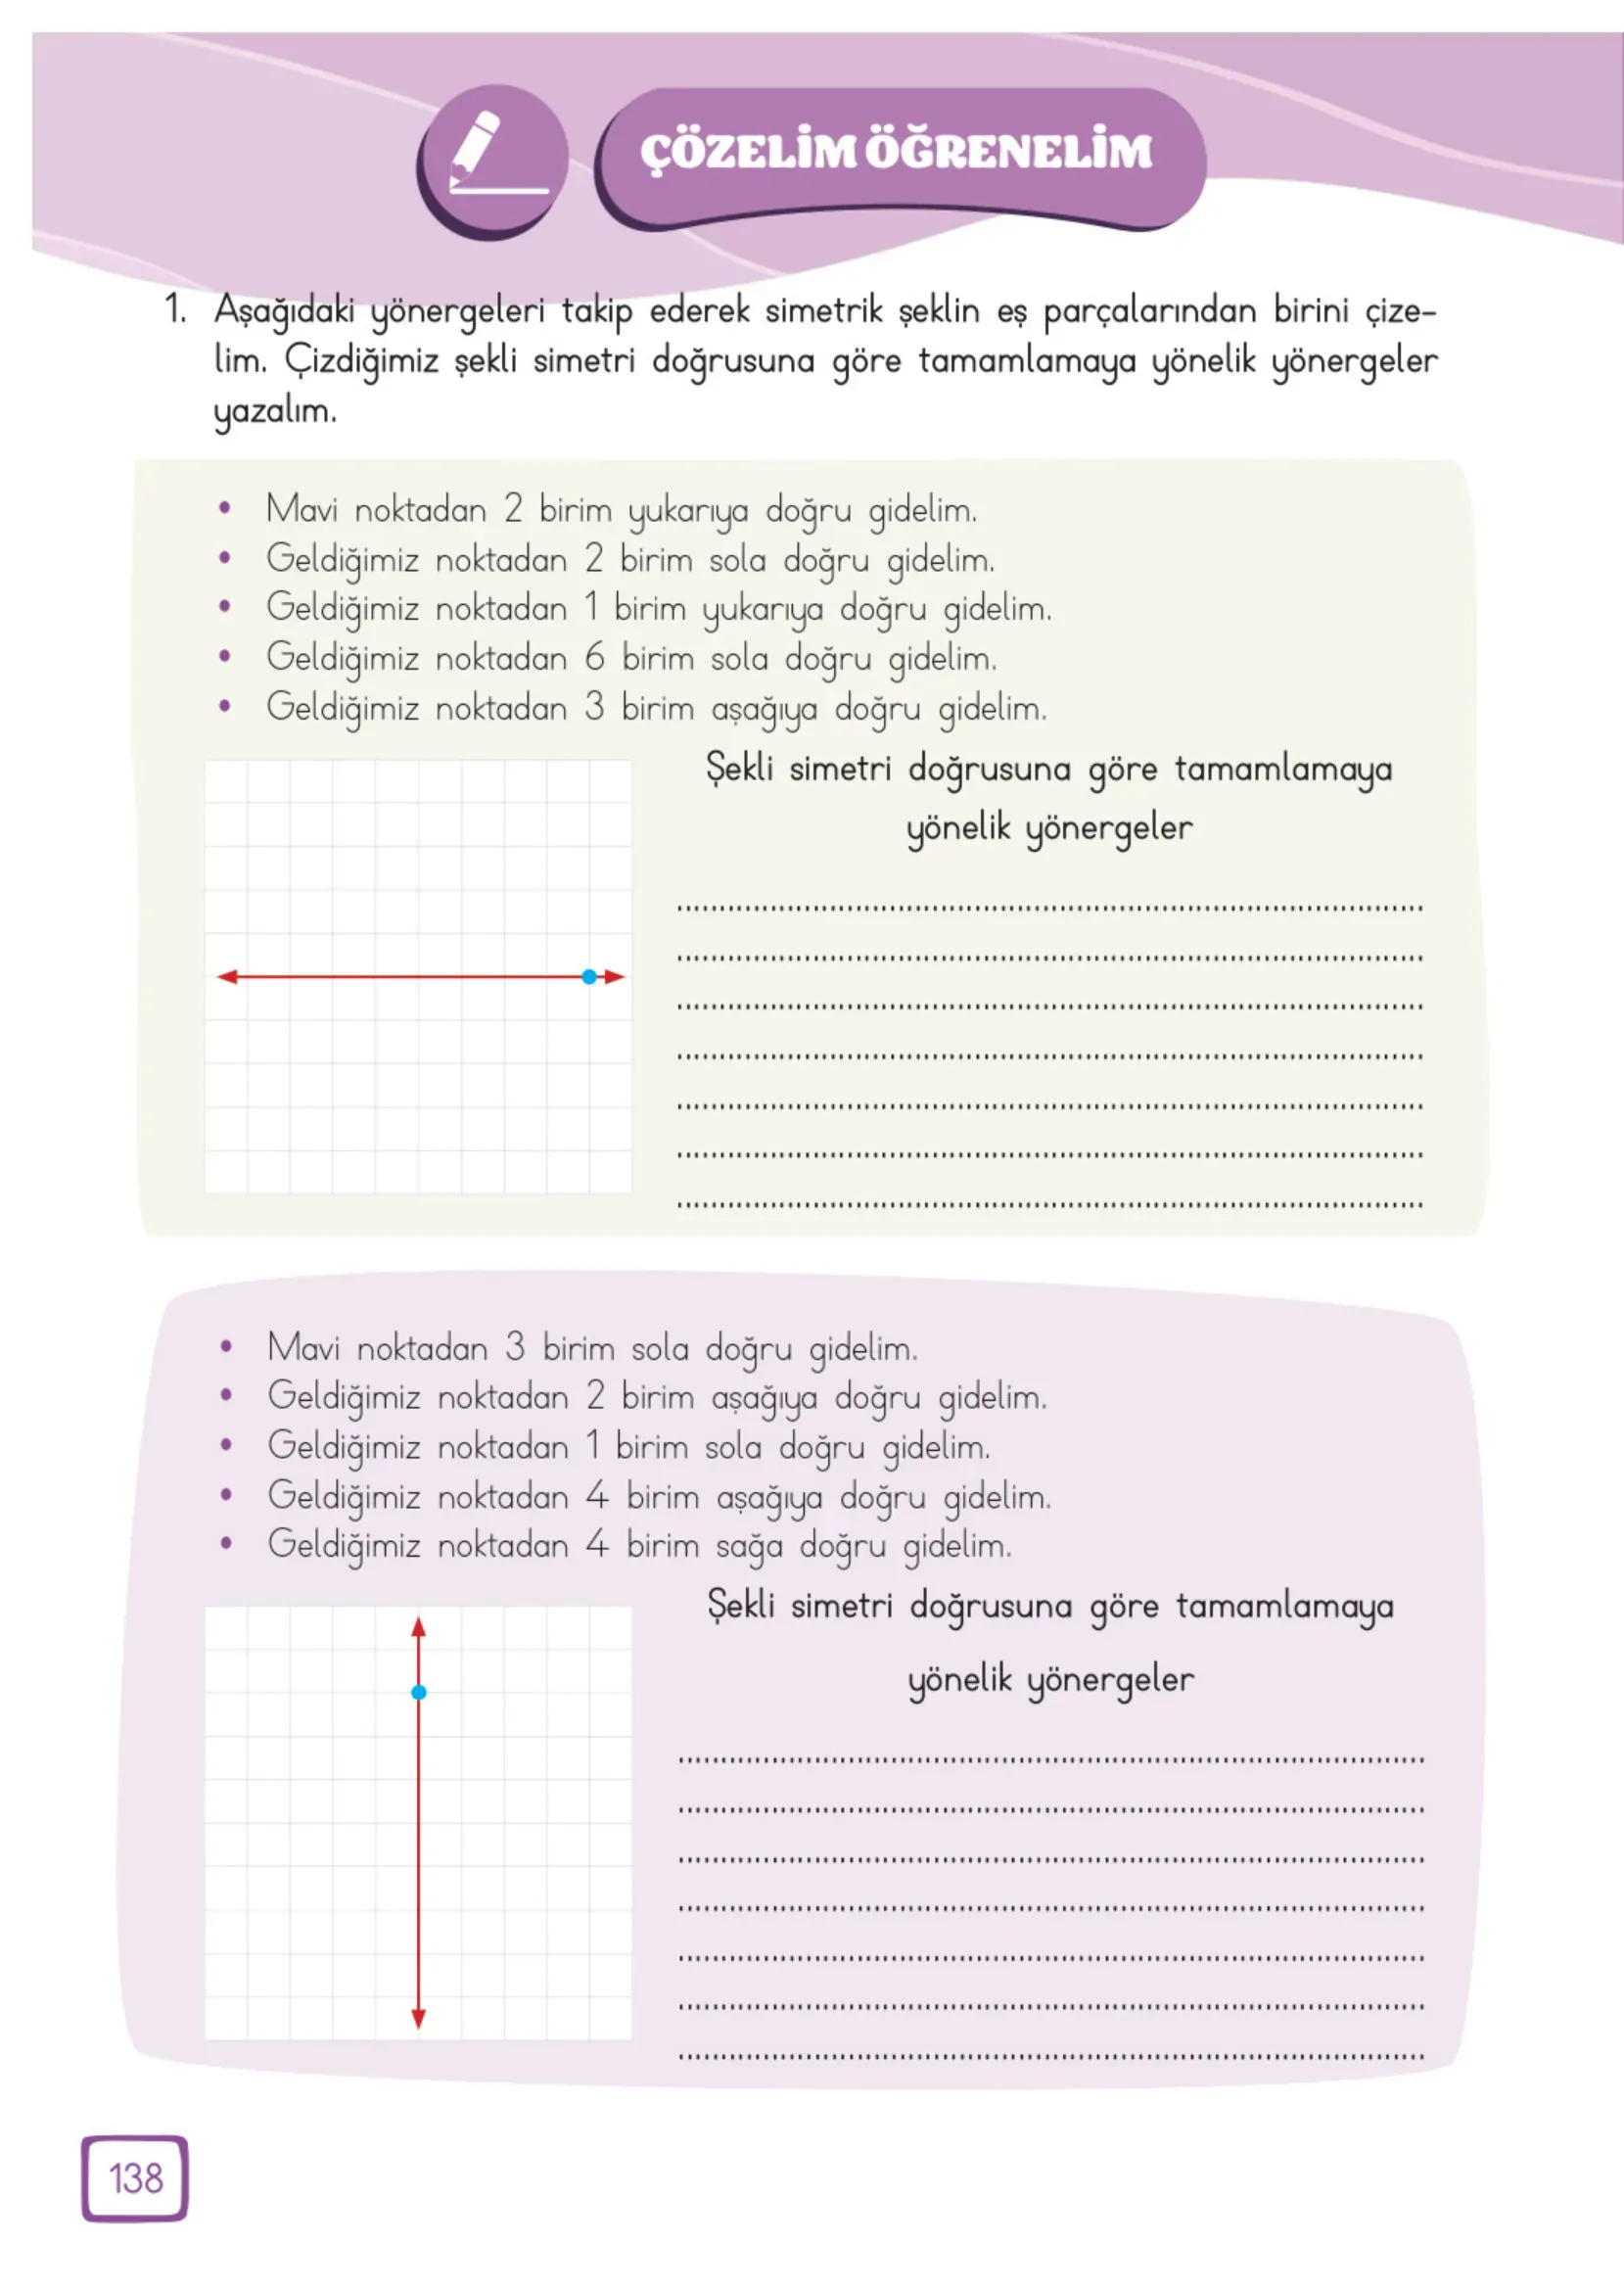 ÇÖZELİM ÖĞRENELİM
1. Aşağıdaki yönergeleri takip ederek simetrik şeklin eş parçalarından birini çize-
lim. Çizdiğimiz şekli simetri doğrusuna göre tamamlamaya yönelik yönergeler
yazalım.
• Mavi noktadan 2 birim yukarıya doğru gidelim.
• Geldiğimiz noktadan 2 birim sola doğru gidelim.
• Geldiğimiz noktadan 1 birim yukarıya doğru gidelim.
• Geldiğimiz noktadan 6 birim sola doğru gidelim.
• Geldiğimiz noktadan 3 birim aşağıya doğru gidelim.
Şekli simetri doğrusuna göre tamamlamaya
yönelik yönergeler
• Mavi noktadan 3 birim sola doğru gidelim.
• Geldiğimiz noktadan 2 birim aşağıya doğru gidelim.
• Geldiğimiz noktadan 1 birim sola doğru gidelim.
• Geldiğimiz noktadan 4 birim aşağıya doğru gidelim.
• Geldiğimiz noktadan 4 birim sağa doğru gidelim.
Şekli simetri doğrusuna göre tamamlamaya
yönelik yönergeler
138